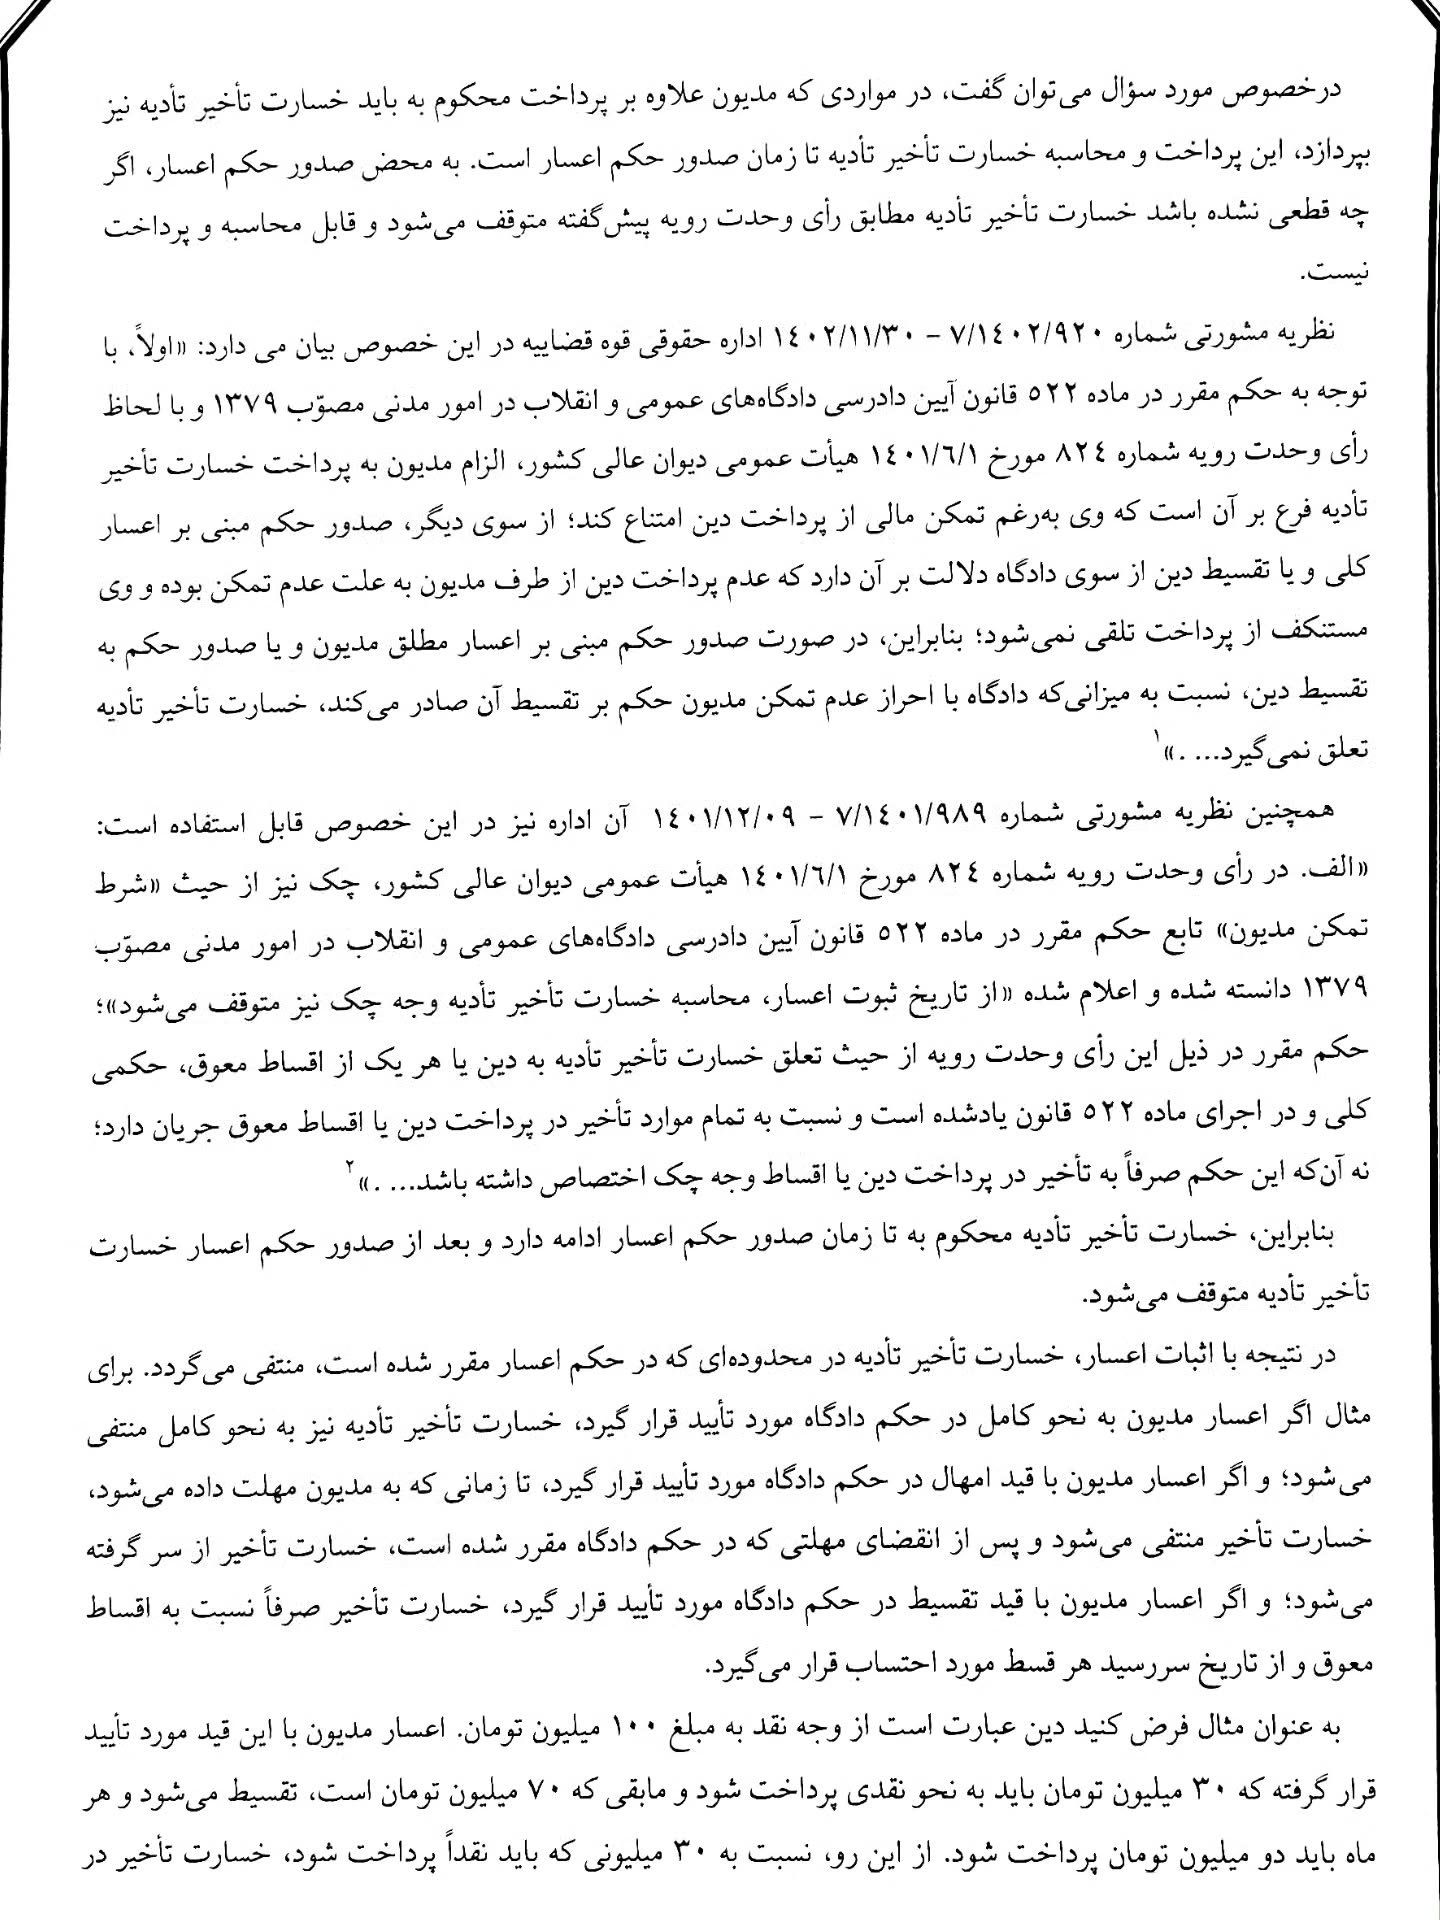 درخصوص مورد سؤال می‌توان گفت، در مواردی که مدیون علاوه بر پرداخت محکوم به باید خسارت تأخیر تأدیه نیز
بپردازد، این پرداخت و محاسبه خسارت تأخیر تأدیه تا زمان صدور حکم اعسار است. به محض صدور حکم اعسار، اگر
چه قطعی نشده باشد خسارت تأخیر تأدیه مطابق رأی وحدت رویه پیش‌گفته متوقف می‌شود و قابل محاسبه و پرداخت
نیست.
نظریه مشورتی شماره ۷/۱٤۰۲/۹۲۰ – ۱٤۰۲/۱۱/۳۰ اداره حقوقی قوه قضاییه در این خصوص بیان می دارد: «اولاً، با
توجه به حکم مقرر در ماده ۵۲۲ قانون آیین دادرسی دادگاه‌های عمومی و انقلاب در امور مدنی مصوّب ۱۳۷۹ و با لحاظ
رأی وحدت رویه شماره ۸۲٤ مورخ ۱٤۰۱/٦/۱ هیأت عمومی دیوان عالی کشور، الزام مدیون به پرداخت خسارت تأخیر
تأدیه فرع بر آن است که وی به‌رغم تمکن مالی از پرداخت دین امتناع کند؛ از سوی دیگر، صدور حکم مبنی بر اعسار
کلی و یا تقسیط دین از سوی دادگاه دلالت بر آن دارد که عدم پرداخت دین از طرف مدیون به علت عدم تمکن بوده و وی
مستنکف از پرداخت تلقی نمی‌شود؛ بنابراین، در صورت صدور حکم مبنی بر اعسار مطلق مدیون و یا صدور حکم به
تقسیط دین، نسبت به میزانی‌که دادگاه با احراز عدم تمکن مدیون حکم بر تقسیط آن صادر می‌کند، خسارت تأخیر تأدیه
تعلق نمی‌گیرد... .»۱
همچنین نظریه مشورتی شماره ۷/۱٤۰۱/۹۸۹ – ۱٤۰۱/۱۲/۰۹ آن اداره نیز در این خصوص قابل استفاده است:
«الف. در رأی وحدت رویه شماره ۸۲٤ مورخ ۱٤۰۱/٦/۱ هیأت عمومی دیوان عالی کشور، چک نیز از حیث «شرط
تمکن مدیون» تابع حکم مقرر در ماده ۵۲۲ قانون آیین دادرسی دادگاه‌های عمومی و انقلاب در امور مدنی مصوّب
۱۳۷۹ دانسته شده و اعلام شده «از تاریخ ثبوت اعسار، محاسبه خسارت تأخیر تأدیه وجه چک نیز متوقف می‌شود»؛
حکم مقرر در ذیل این رأی وحدت رویه از حیث تعلق خسارت تأخیر تأدیه به دین یا هر یک از اقساط معوق، حکمی
کلی و در اجرای ماده ۵۲۲ قانون یادشده است و نسبت به تمام موارد تأخیر در پرداخت دین یا اقساط معوق جریان دارد؛
نه آن‌که این حکم صرفاً به تأخیر در پرداخت دین یا اقساط وجه چک اختصاص داشته باشد... .»۲
بنابراین، خسارت تأخیر تأدیه محکوم به تا زمان صدور حکم اعسار ادامه دارد و بعد از صدور حکم اعسار خسارت
تأخیر تأدیه متوقف می‌شود.
در نتیجه با اثبات اعسار، خسارت تأخیر تأدیه در محدوده‌ای که در حکم اعسار مقرر شده است، منتفی می‌گردد. برای
مثال اگر اعسار مدیون به نحو کامل در حکم دادگاه مورد تأیید قرار گیرد، خسارت تأخیر تأدیه نیز به نحو کامل منتفی
می‌شود؛ و اگر اعسار مدیون با قید امهال در حکم دادگاه مورد تأیید قرار گیرد، تا زمانی که به مدیون مهلت داده می‌شود،
خسارت تأخیر منتفی می‌شود و پس از انقضای مهلتی که در حکم دادگاه مقرر شده است، خسارت تأخیر از سر گرفته
می‌شود؛ و اگر اعسار مدیون با قید تقسیط در حکم دادگاه مورد تأیید قرار گیرد، خسارت تأخیر صرفاً نسبت به اقساط
معوق و از تاریخ سررسید هر قسط مورد احتساب قرار می‌گیرد.
به عنوان مثال فرض کنید دین عبارت است از وجه نقد به مبلغ ۱۰۰ میلیون تومان. اعسار مدیون با این قید مورد تأیید
قرار گرفته که ۳۰ میلیون تومان باید به نحو نقدی پرداخت شود و مابقی که ۷۰ میلیون تومان است، تقسیط می‌شود و هر
ماه باید دو میلیون تومان پرداخت شود. از این رو، نسبت به ۳۰ میلیونی که باید نقداً پرداخت شود، خسارت تأخیر در